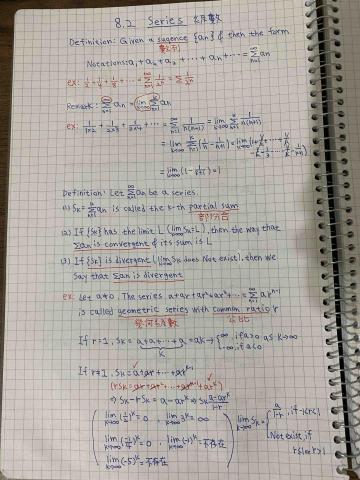 8.2 Series 級數
Definition: Given a sequence {an} & then the form
數列
Notations: a1+a2+a3+⋯+an+⋯=∑(n=1→∞) an
ex: 1/2+1/4+1/8+⋯=∑(n=1→∞) 1/2^n=∑ 1/2^n
Remark: ∑(n=1→∞) an = lim(k→∞) ∑(n=1→k) an
ex: 1/1×2+1/2×3+1/3×4+⋯=∑(n=1→∞) 1/n(n+1)=lim(k→∞) ∑(n=1→k) 1/n(n+1)
=lim(k→∞) ∑(n=1→k) (1/n-1/n+1)=lim(k→∞)
=lim(k→∞) (1-1/k+1)=1
Definition: Let ∑(n=1→∞) an be a series.
(1) Sk=∑(n=1→k) an is called the k-th partial sum
部分合
(2) If {Sk} has the limit L (lim(k→∞) Sk=L), then the way that
∑an is convergent & its sum is L
(3) If {Sk} is divergent (lim(k→∞) Sk does Not exist), then we
say that ∑an is divergent
ex: Let a≠0. The series a+ar+ar²+ar³+⋯=∑(n=1→∞) ar^n-1
is called geometric series with common ratio r
幾何級數 公比
If r=1, Sk=a+a+⋯+a=ak→{∞, if a>0 as k→∞
k -∞, if a<0
If r≠1, Sk=a+ar+⋯+ar^k-1
(rSk=ar+ar²+⋯+ar^k-1+ar^k)
⇒Sk-rSk=a-ar^k⇒Sk=a-ar^k/1-r
lim(k→∞) (1/2)^k=0, lim(k→∞) 3^k=∞
lim(k→∞) Sk={a/1-r, if -1<r<1
lim(k→∞) =0, lim(k→∞) (-1)^k=不存在
Not exist, if
lim(k→∞) (-5)^k=不存在